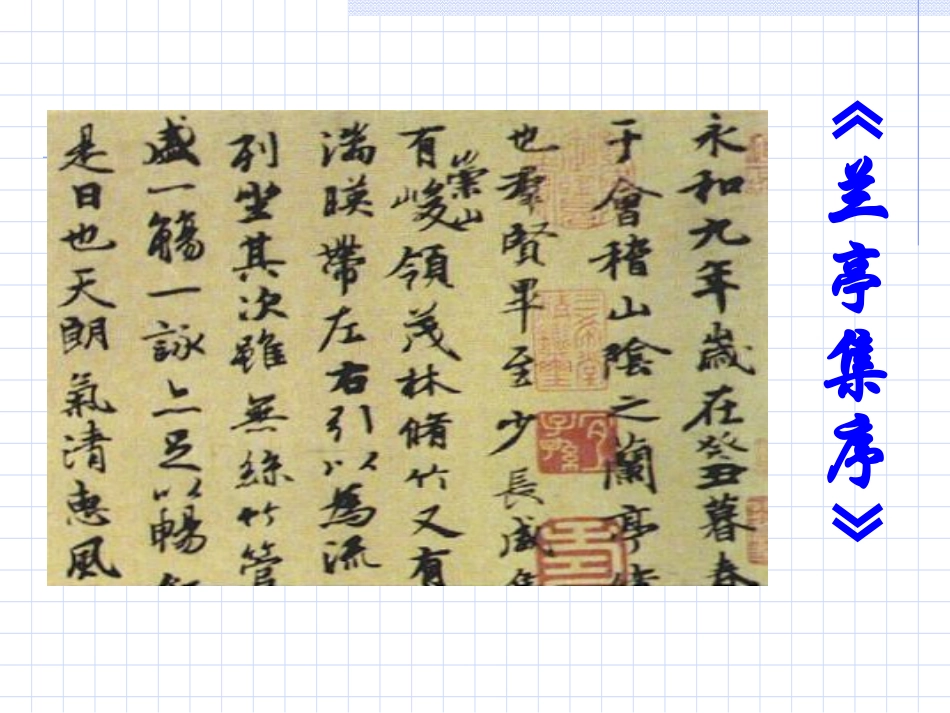 《兰亭集序》
永和九年歲在癸丑暮春
于會稽山陰之蘭亭
也羣賢畢至少長咸
有崇山峻領茂林脩竹又有
湍暎帶左右引以為流
列坐其次雖無絲竹管
盛一觴一詠亦足以暢
是日也天朗氣清惠風